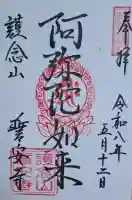 奉拝
令和八年
五月十二日
阿弥陀如来
護念山
聖安寺